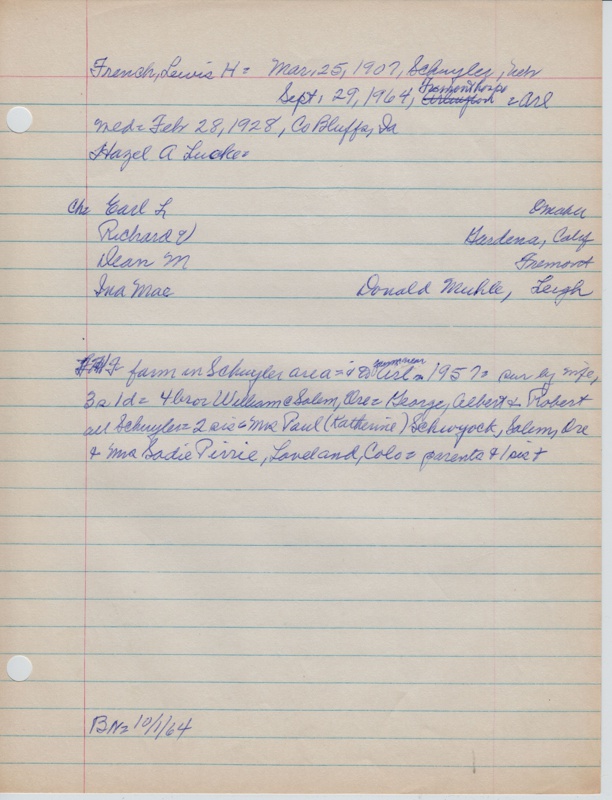 French, Lewis H = Mar, 25, 1907, Schuyler, Neb
Fremont hosp
Sept, 29, 1964, Arlington = Arl
Med = Feb 28, 1928, Co Bluffs, Ia
Hazel A Lucke =
Chi Earl L Omaha
Richard W Gardena, Calif
Dean M Fremont
Ina Mae Donald Muhle, Leigh
farm near
farm in Schuyler area = Arl = 1957 = sur by wife,
3 s 1 d = 4 bros William Salem, Ore = George, Albert & Robert
all Schuyler = 2 sis = Mrs Paul (Katherine) Schwyock, Salem, Ore
& Mrs Sadie Pirrie, Loveland, Colo = parents & 1 sis +
BN = 10/1/64